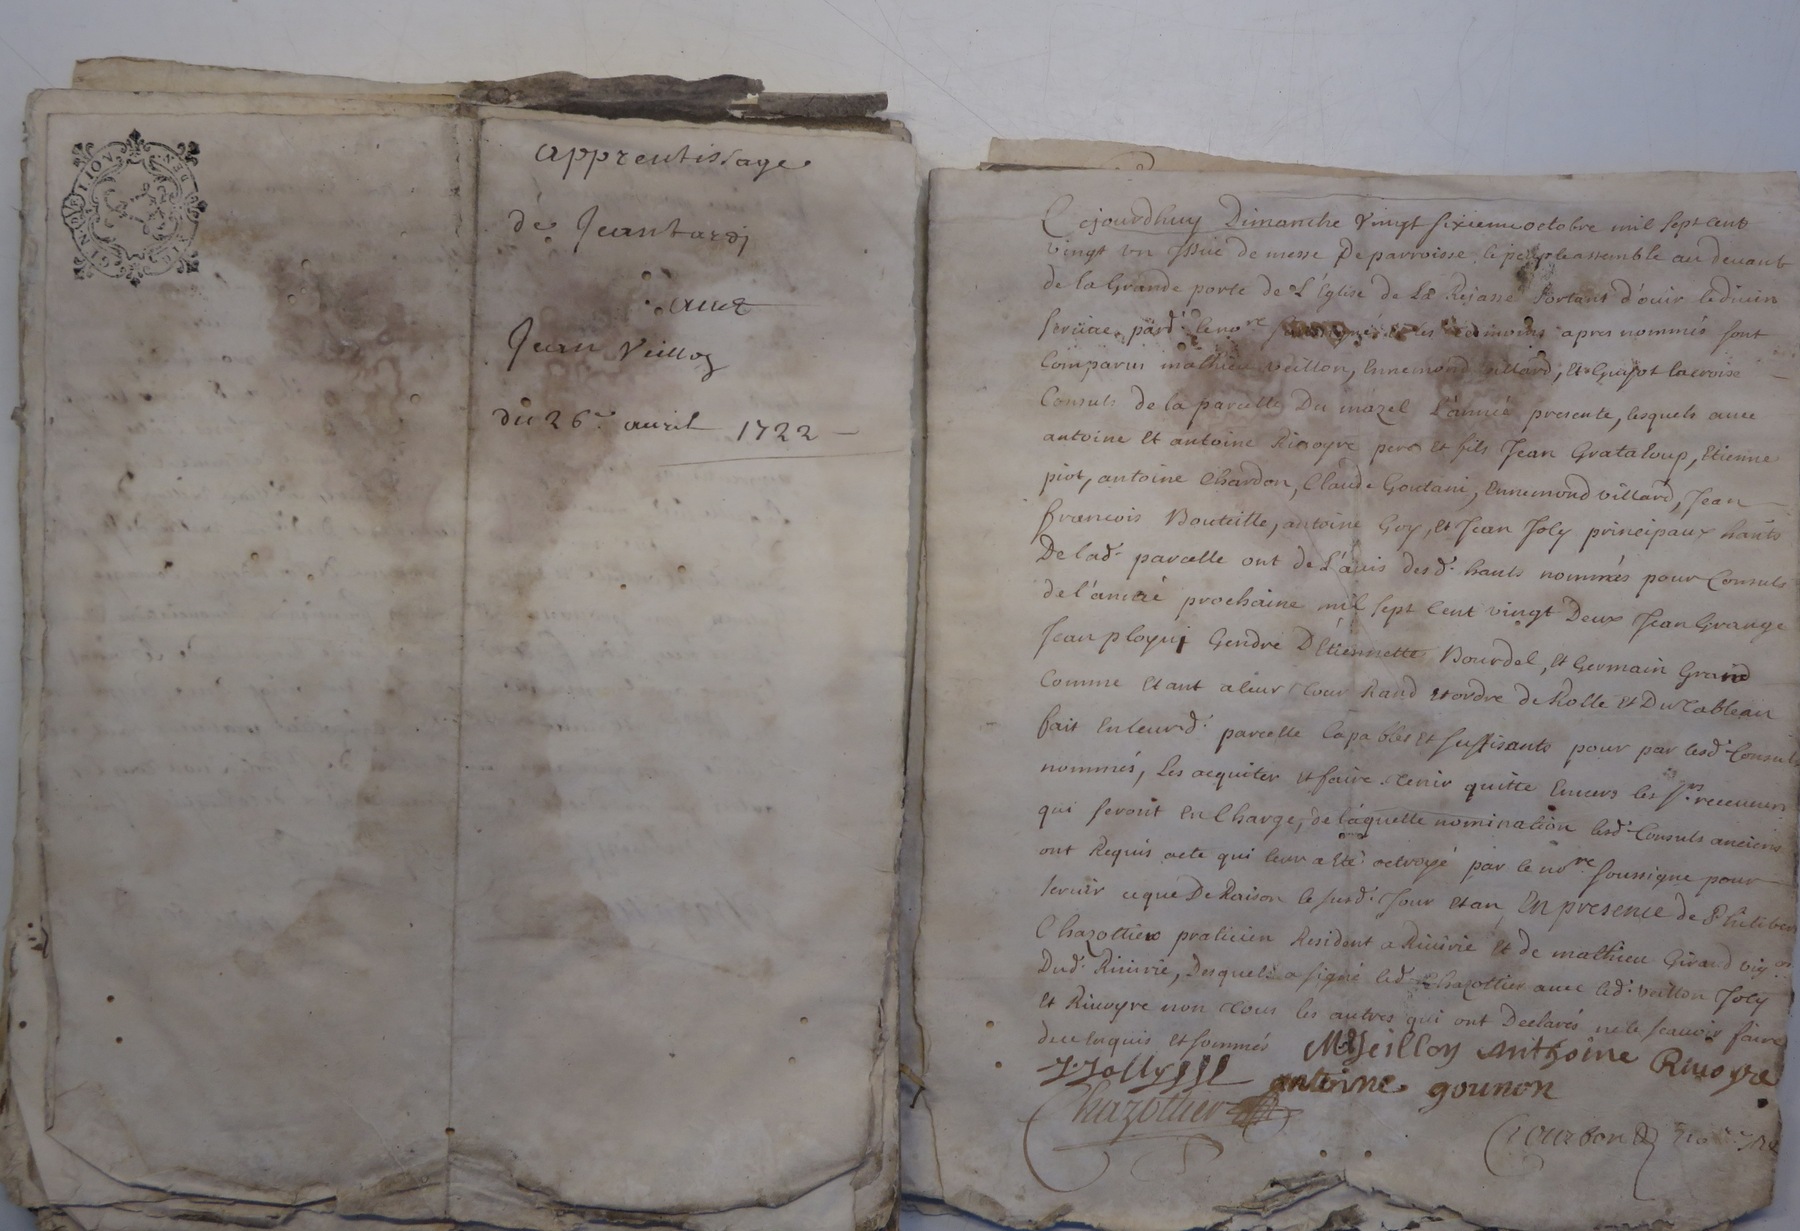 apprentissage
de Jean tardj
auec
Jean Veilloz
du 26e auril 1722
Cejourdhuy Dimanche Vingt sixieme octobre mil sept cent
vingt vn Jssue de messe De parroisse le peuple assemblé au deuant
de la Grande porte de L'Eglise de La Rejasse sortant d'ouir le diuin
seruice pard.t le no.re tesmoins apres nommés sont
Comparus mathieu veillon, Ennemond villard, Et Guijot lacroise
Consuls de la parcelle Du mazel L'année presente, lesquels auec
antoine Et antoine Riuoyre pere et fils Jean Grataloup, Etienne
piot, antoine Chardon, Claude Goutani, Ennemond villard, Jean
francois Bouteille, antoine Goy, Et Jean Joly principaux hants
De lad. parcelle ont de L'auis desd. hants nommés pour Consuls
de l'année prochaine mil sept cent vingt Deux Jean Grange
Jean ployni Gendre D'Etiennette Bourdel, et Germain Grand
Comme Etant a leur tour Rand et ordre de Rolle et Du Tableau
fait En leurd. parcelle Capables et suffisants pour par lesd. Consuls
nommés, Les acquiter et faire tenir quitte Enuers les s.rs receueurs
qui seront En Charge, de laquelle nomination lesd. Consuls anciens
ont Requis acte qui leur a Eté octroyé par le no.re soussigne pour
seruir ce que De Raison le susd. Jour et an En presence de Philiber
Chazottier praticien Resident a Riuirie Et de mathieu Giraud vig.on
Dud. Riuirie, Desquels a signé led. Chazottier auec led. veillon Joly
Et Riuoyre non tous les autres qui ont Declarés ne le scauoir faire
de ce Enquis et sommés MVeillon anthoine Riuoyre
J. Jolly antoinne gounon
Chazottier
Courbon no.re